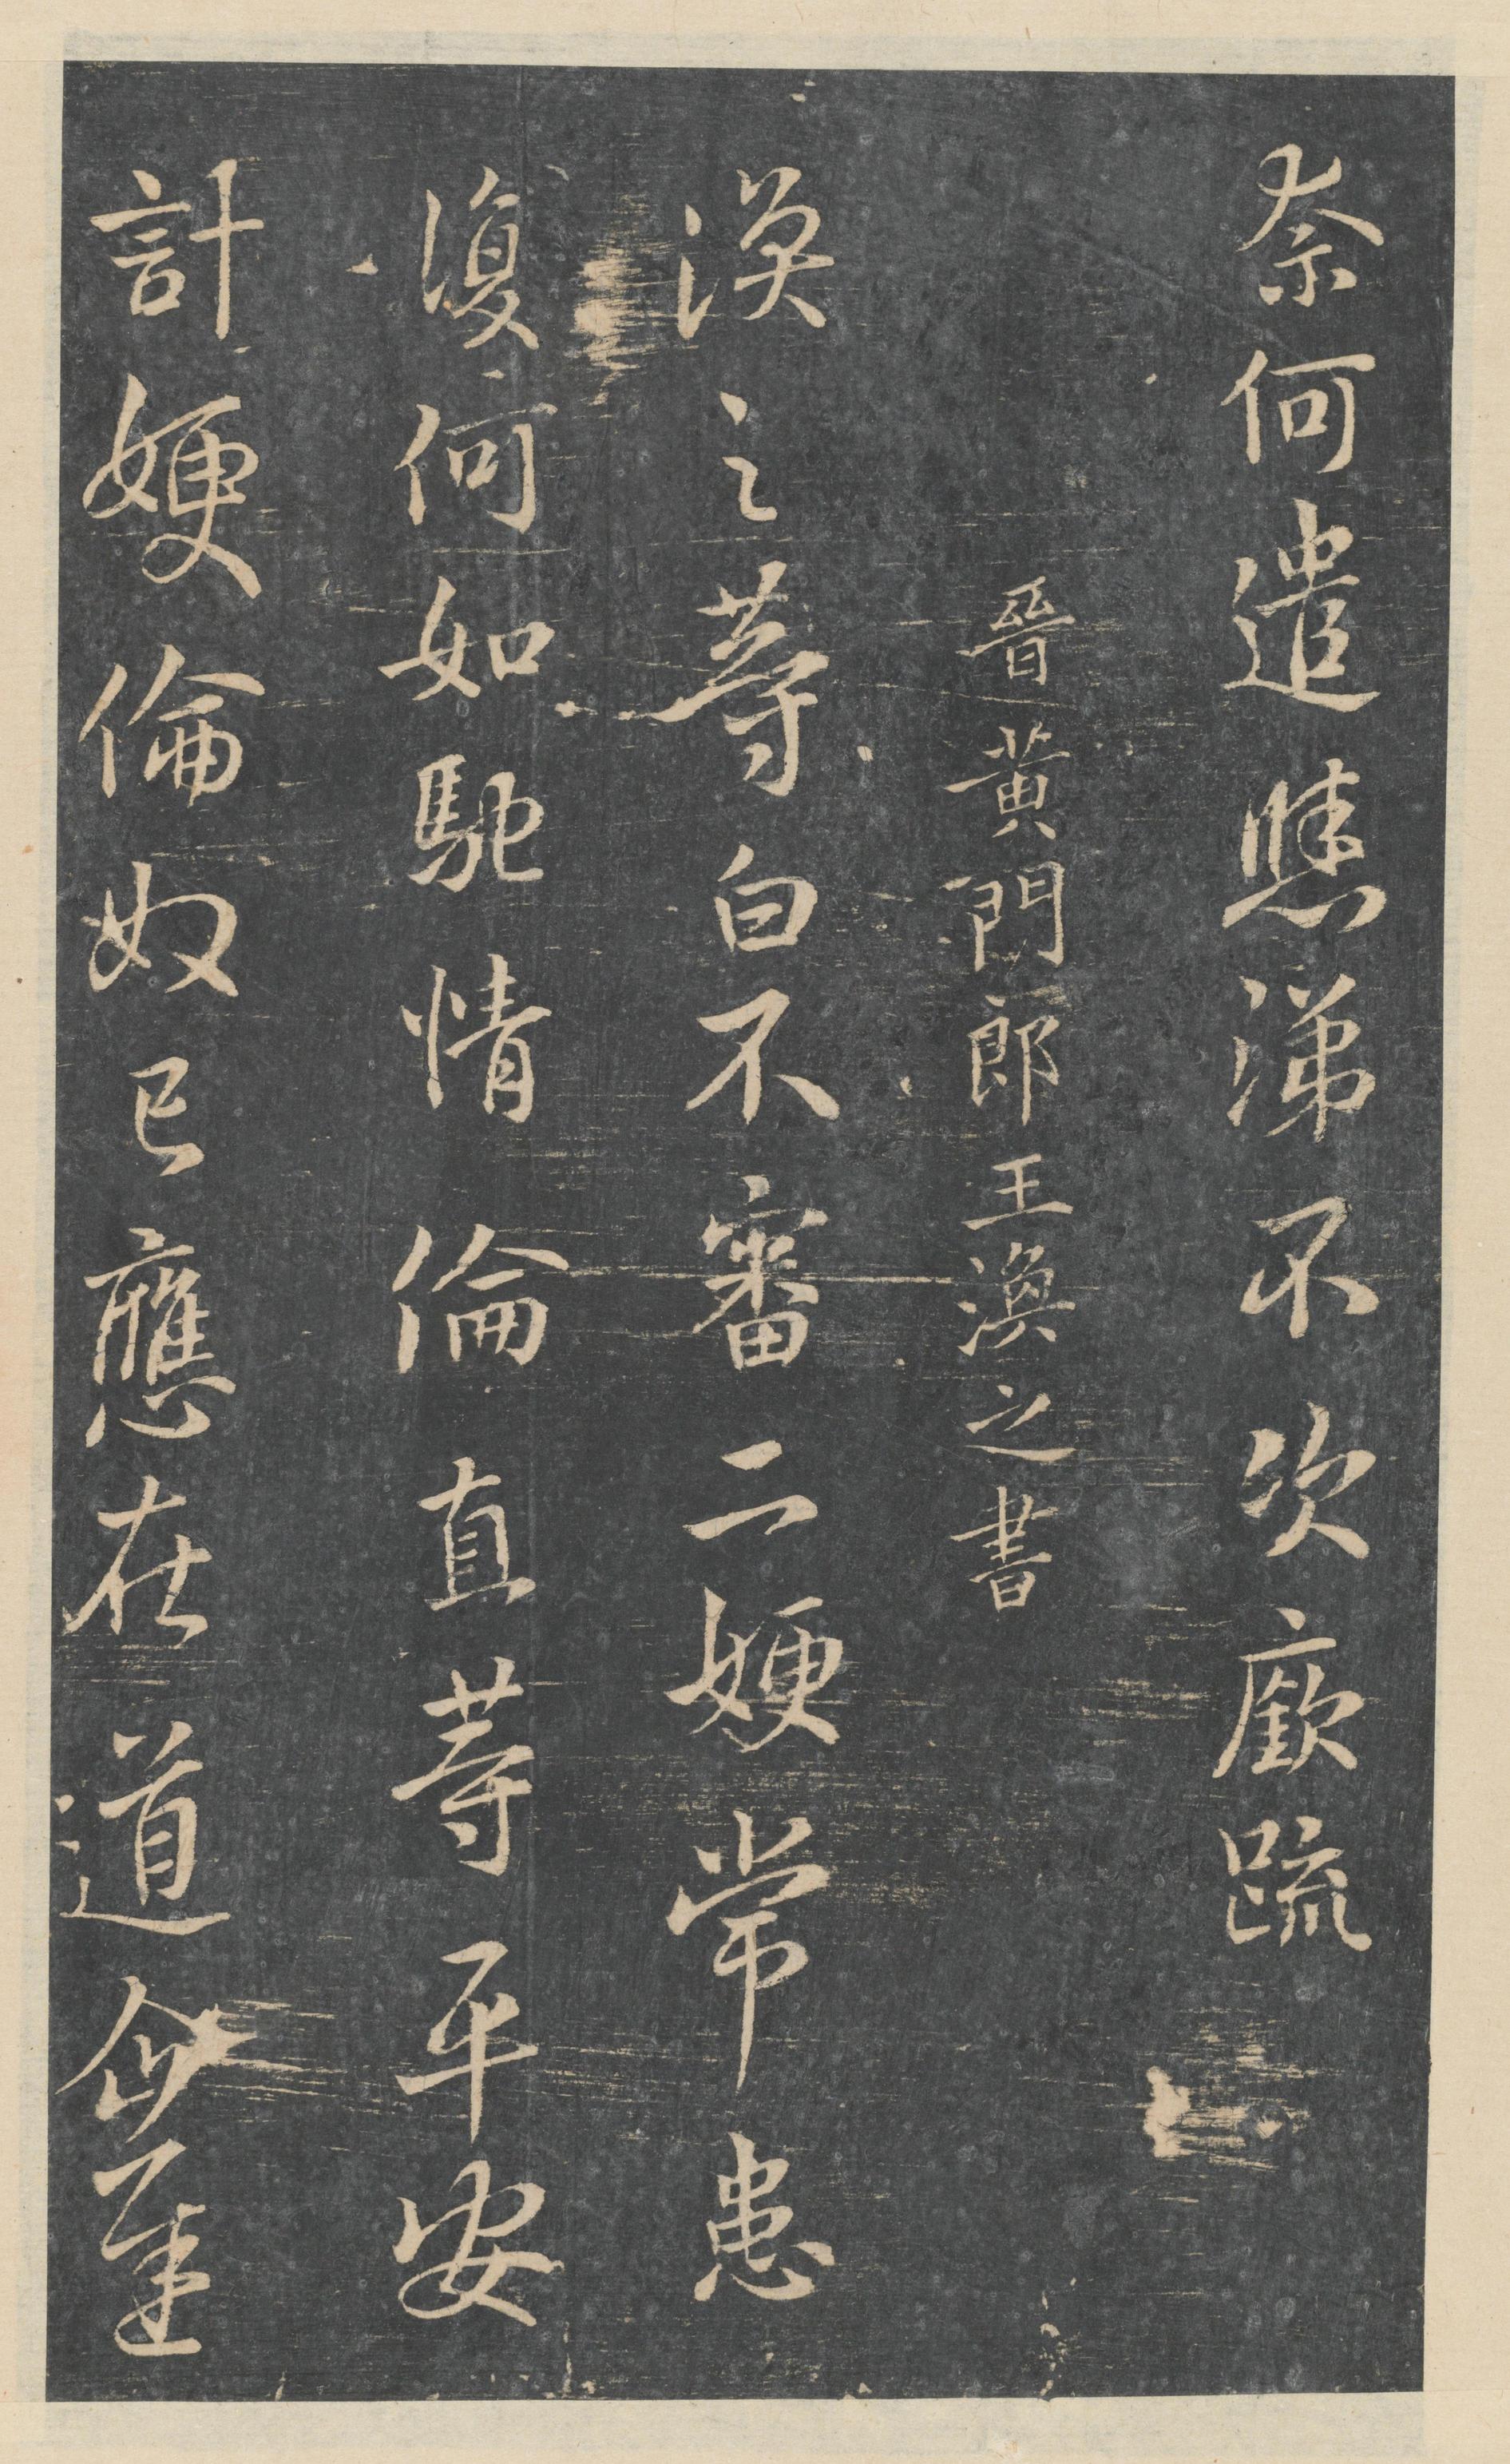 奈何遣悲涕不次廞疏
晉黃門郎王渙之書
渙之等白不審二嫂常患
復何如馳情倫直等平安
計嫂倫奴已應在道企遲